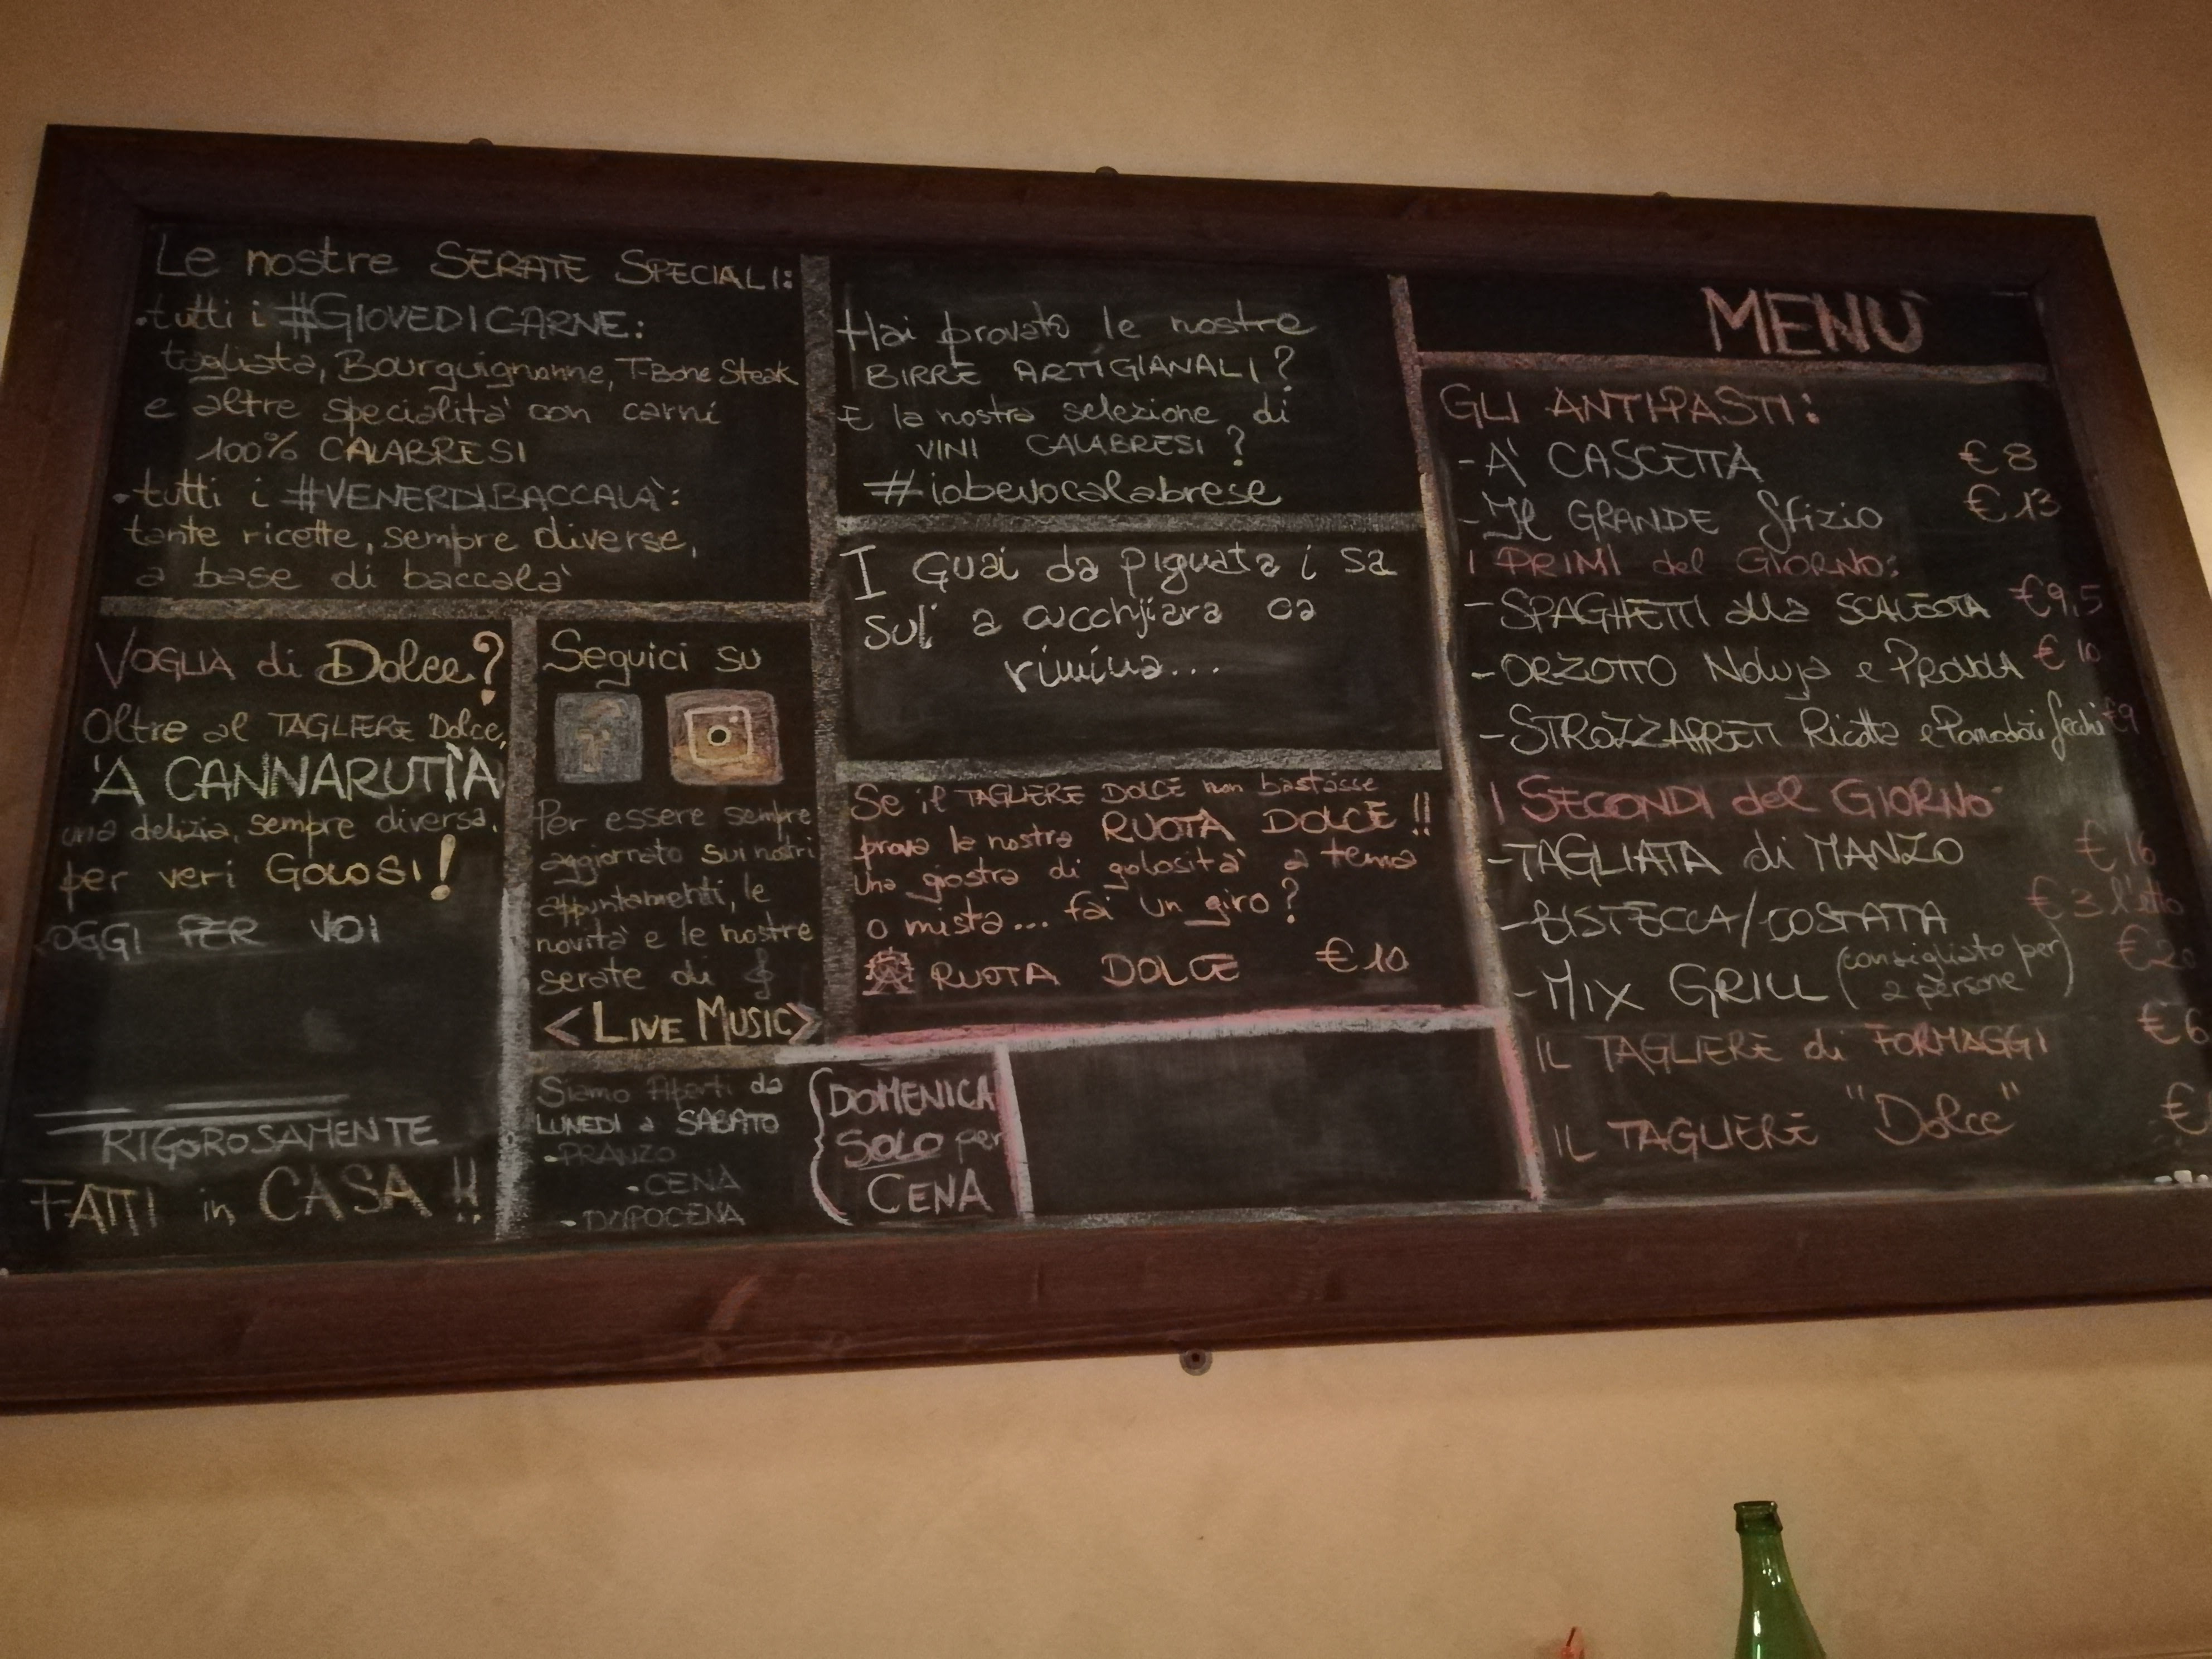 Le nostre SERATE SPECIALI:
• tutti i #GIOVEDICARNE:
tagliata, Bourguignonne, T-Bone Steak
e altre specialità con carni
100% CALABRESI
• tutti i #VENERDIBACCALÀ:
tante ricette, sempre diverse,
a base di baccalà
VOGLIA di Dolce?
Oltre al TAGLIERE Dolce,
'A CANNARUTÌA
una delizia, sempre diversa,
per veri GOLOSI!
OGGI PER VOI
RIGOROSAMENTE
FATTI in CASA !!
Seguici su
Per essere sempre
aggiornato sui nostri
appuntamenti, le
novità e le nostre
serate di
<LIVE MUSIC>
Siamo Aperti da
LUNEDI a SABATO
- PRANZO
- CENA
- DOPOCENA
DOMENICA
SOLO per
CENA
Hai provato le nostre
BIRRE ARTIGIANALI?
E la nostra selezione di
VINI CALABRESI?
#iobevocalabrese
I Guai da pignata i sa
sul' a cucchjiara ca
rimina...
Se il TAGLIERE DOLCE non bastasse
prova la nostra RUOTA DOLCE!!
Una giostra di golosità a tema
o mista... fai un giro?
RUOTA DOLCE €10
MENÙ
GLI ANTIPASTI:
- A' CASCETTA €8
- Il GRANDE Sfizio €13
I PRIMI del GIORNO:
- SPAGHETTI alla SCALEOTA €9,5
- ORZOTTO Nduja e PROVOLA €10
- STROZZAPRETI Ricotta e Pomodori Secchi €9
I SECONDI del GIORNO
- TAGLIATA di MANZO €16
- BISTECCA/COSTATA €3 l'etto
- MIX GRILL (consigliato per 2 persone) €20
IL TAGLIERE di FORMAGGI €6
IL TAGLIERE "Dolce" €